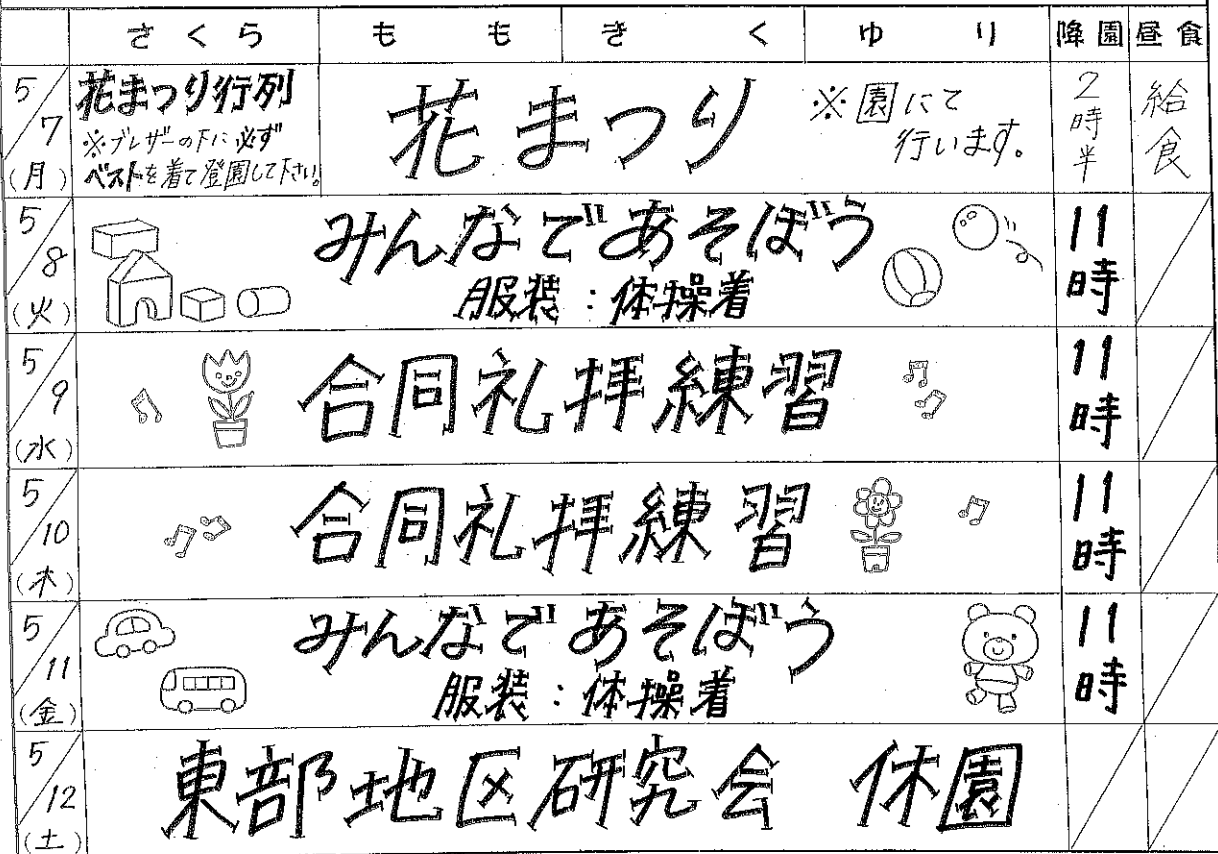 さくら もも きく ゆり 降園 昼食
5/7(月)
花まつり行列
※ブレザーの下に必ず
ベストを着て登園して下さい。
花まつり
※園にて
行います。
2時半
給食
5/8(火)
みんなであそぼう
服装：体操着
11時
5/9(水)
合同礼拝練習
11時
5/10(木)
合同礼拝練習
11時
5/11(金)
みんなであそぼう
服装：体操着
11時
5/12(土)
東部地区研究会 休園